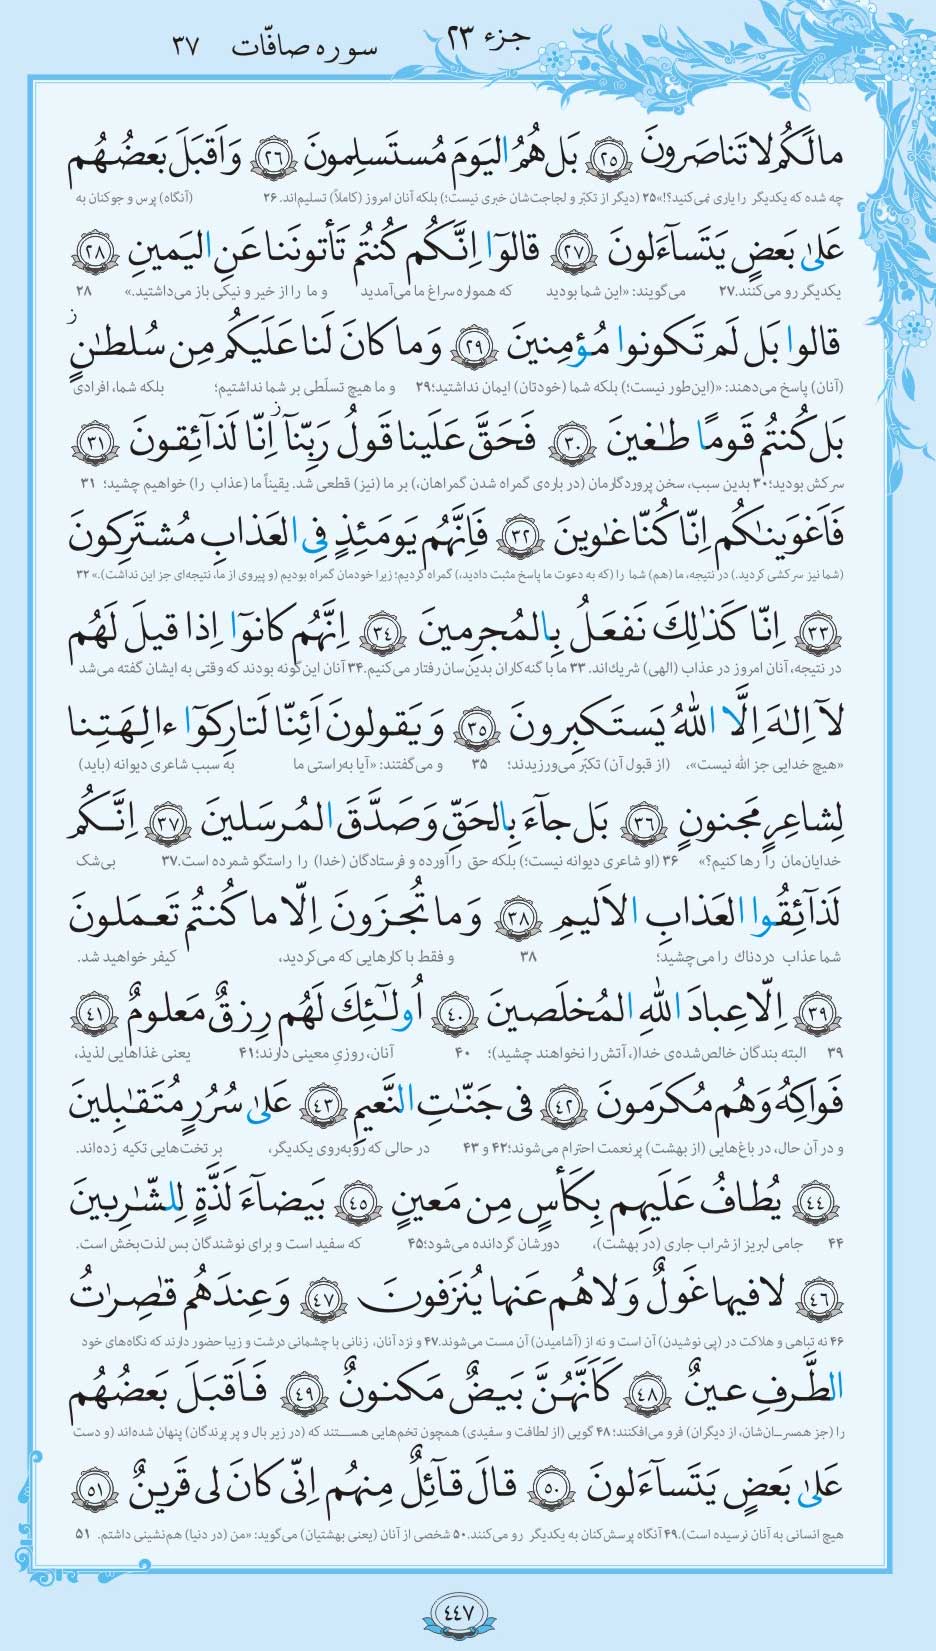 جزء ۲۳
سوره صافّات ۳۷
مالَكُم لاتَناصَرونَ ﴿٢٥﴾ بَل هُمُ اليَومَ مُستَسلِمونَ ﴿٢٦﴾ وَ اَقبَلَ بَعضُهُم
چه شده که یکدیگر را یاری نمی‌کنید؟!»۲۵ (دیگر از تکبّر و لجاجت‌شان خبری نیست؛) بلکه آنان امروز (کاملاً) تسلیم‌اند. ۲۶ (آنگاه) پرس و جوکنان به
عَلىٰ بَعضٍ يَتَسآءَلونَ ﴿٢٧﴾ قالوٓا اِنَّكُم كُنتُم تَأتونَنا عَنِ اليَمينِ ﴿٢٨﴾
یکدیگر رو می‌کنند.۲۷ می‌گویند: «این شما بودید که همواره سراغ ما می‌آمدید و ما را از خیر و نیکی باز می‌داشتید.» ۲۸
قالوا بَل لَم تَكونوا مُؤمِنينَ ﴿٢٩﴾ وَ ما كانَ لَنا عَلَيكُم مِن سُلطٰنٍ ز
(آنان) پاسخ می‌دهند: «(این‌طور نیست؛) بلکه شما (خودتان) ایمان نداشتید؛۲۹ و ما هیچ تسلّطی بر شما نداشتیم؛ بلکه شما، افرادی
بَل كُنتُم قَومًا طٰغينَ ﴿٣٠﴾ فَحَقَّ عَلَينا قَولُ رَبِّنآ ز اِنّا لَذآئِقونَ ﴿٣١﴾
سرکش بودید؛۳۰ بدین سبب، سخن پروردگارمان (در باره‌ی گمراه شدن گمراهان،) بر ما (نیز) قطعی شد. یقیناً ما (عذاب را) خواهیم چشید؛ ۳۱
فَاَغوَينٰكُم اِنّا كُنّا غٰوينَ ﴿٣٢﴾ فَاِنَّهُم يَومَئِذٍ فِى العَذابِ مُشتَرِكونَ
(شما نیز سرکشی کردید.) در نتیجه، ما (هم) شما را (که به دعوت ما پاسخ مثبت دادید،) گمراه کردیم؛ زیرا خودمان گمراه بودیم (و پیروی از ما، نتیجه‌ای جز این نداشت).» ۳۲
﴿٣٣﴾ اِنّا كَذٰلِكَ نَفعَلُ بِالمُجرِمينَ ﴿٣٤﴾ اِنَّهُم كانوٓا اِذا قيلَ لَهُم
در نتیجه، آنان امروز در عذاب (الهی) شریک‌اند. ۳۳ ما با گنه‌کاران بدین‌سان رفتار می‌کنیم.۳۴ آنان این‌گونه بودند که وقتی به ایشان گفته می‌شد
لآ اِلٰهَ اِلَّا اللّٰهُ يَستَكبِرونَ ﴿٣٥﴾ وَ يَقولونَ اَئِنّا لَتارِكوٓا ءالِهَتِنا
«هیچ خدایی جز الله نیست»، (از قبول آن) تکبّر می‌ورزیدند؛ ۳۵ و می‌گفتند: «آیا به‌راستی ما به سبب شاعری دیوانه (باید)
لِشاعِرٍ مَجنونٍ ﴿٣٦﴾ بَل جآءَ بِالحَقِّ وَ صَدَّقَ المُرسَلينَ ﴿٣٧﴾ اِنَّكُم
خدایان‌مان را رها کنیم؟» ۳۶ (او شاعری دیوانه نیست؛) بلکه حق را آورده و فرستادگان (خدا) را راستگو شمرده است.۳۷ بی‌شک
لَذآئِقُوا العَذابِ الاَليمِ ﴿٣٨﴾ وَ ما تُجزَونَ اِلّا ما كُنتُم تَعمَلونَ
شما عذاب دردناک را می‌چشید؛ ۳۸ و فقط با کارهایی که می‌کردید، کیفر خواهید شد.
﴿٣٩﴾ اِلّا عِبادَ اللّٰهِ المُخلَصينَ ﴿٤٠﴾ اُولٰٓئِكَ لَهُم رِزقٌ مَعلومٌ ﴿٤١﴾
۳۹ البته بندگان خالص‌شده‌ی خدا(، آتش را نخواهند چشید)؛ ۴۰ آنان، روزیِ معینی دارند؛۴۱ یعنی غذاهایی لذیذ،
فَواكِهُ وَ هُم مُكرَمونَ ﴿٤٢﴾ فى جَنّٰتِ النَّعيمِ ﴿٤٣﴾ عَلىٰ سُرُرٍ مُتَقٰبِلينَ
و در آن حال، در باغ‌هایی (از بهشت) پرنعمت احترام می‌شوند؛۴۲ و ۴۳ در حالی که روبه‌روی یکدیگر، بر تخت‌هایی تکیه زده‌اند.
﴿٤٤﴾ يُطافُ عَلَيهِم بِكَأسٍ مِن مَعينٍ ﴿٤٥﴾ بَيضآءَ لَذَّةٍ لِلشّٰرِبينَ
۴۴ جامی لبریز از شراب جاری (در بهشت)، دورشان گردانده می‌شود؛۴۵ که سفید است و برای نوشندگان بس لذت‌بخش است.
﴿٤٦﴾ لا فيها غَولٌ وَ لا هُم عَنها يُنزَفونَ ﴿٤٧﴾ وَ عِندَهُم قٰصِرٰتُ
۴۶ نه تباهی و هلاکت در (پی نوشیدن) آن است و نه از (آشامیدن) آن مست می‌شوند.۴۷ و نزد آنان، زنانی با چشمانی درشت و زیبا حضور دارند که نگاه‌های خود
الطَّرفِ عينٌ ﴿٤٨﴾ كَاَنَّهُنَّ بَيضٌ مَكنونٌ ﴿٤٩﴾ فَاَقبَلَ بَعضُهُم
را (جز همسران‌شان، از دیگران) فرو می‌افکنند؛۴۸ گویی (از لطافت و سفیدی) همچون تخم‌هایی هستند که (در زیر بال و پر پرندگان) پنهان شده‌اند (و دست
عَلىٰ بَعضٍ يَتَسآءَلونَ ﴿٥٠﴾ قالَ قآئِلٌ مِنهُم اِنّى كانَ لى قَرينٌ ﴿٥١﴾
هیچ انسانی به آنان نرسیده است).۴۹ آنگاه پرسش‌کنان به یکدیگر رو می‌کنند.۵۰ شخصی از آنان (یعنی بهشتیان) می‌گوید: «من (در دنیا) هم‌نشینی داشتم. ۵۱
٤٤٧